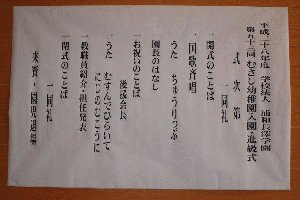 平成二十八年度　学校法人　浦和長澤学園
第五十二回むさし幼稚園入園・進級式
式次第
一同礼
一開式のことば
一国歌斉唱
うた　ちゅうりっぷ
一園長のはなし
一お祝いのことば
後援会長
一うた　むすんでひらいて
にじのむこうに
一教職員紹介・担任発表
一閉式のことば
一同礼
来賓・園児退場